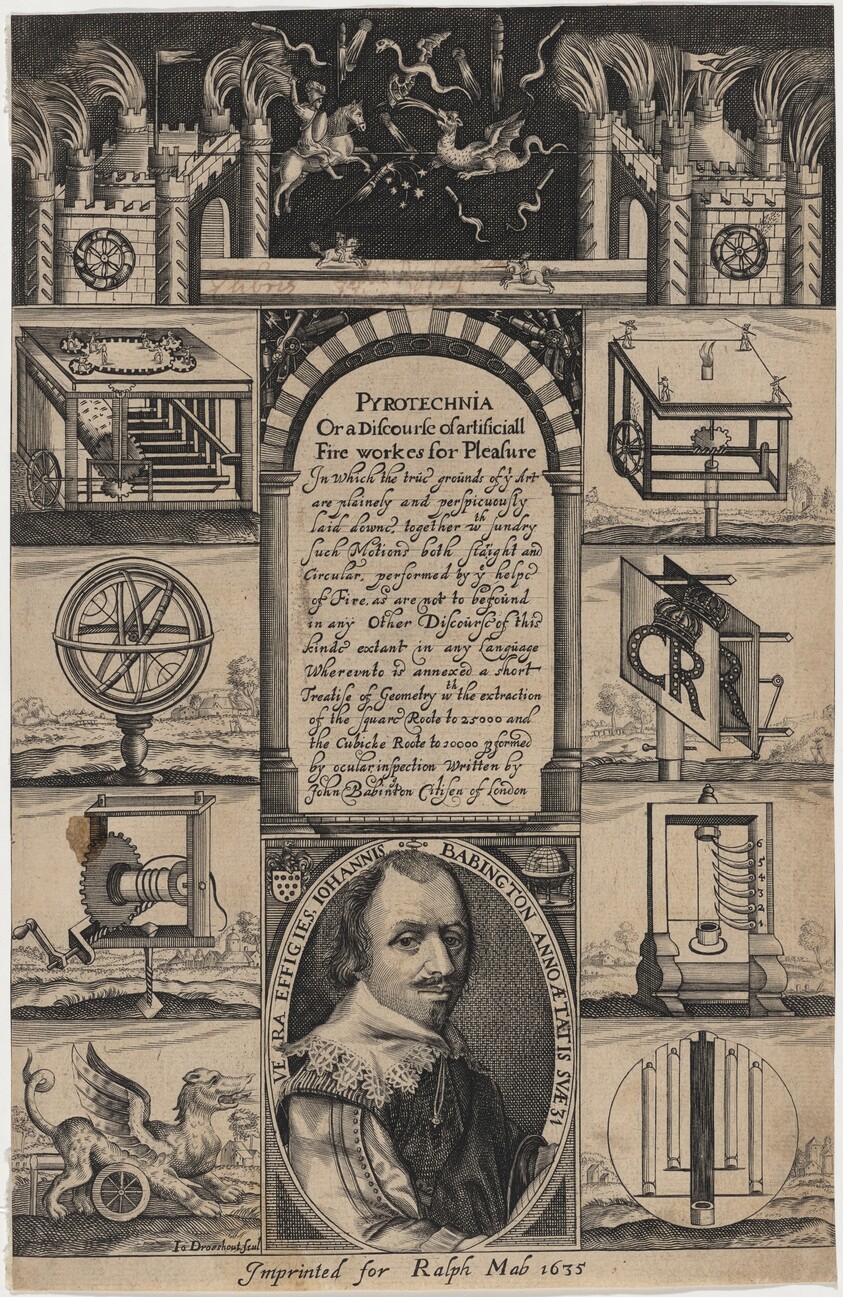 PYROTECHNIA
Or a Discourse of artificiall
Fire workes for Pleasure
In Which the true grounds of yͤ Art
are plainely and perspicuously
laid downe, together wᵗʰ sundry
such Motions both straight and
Circular, performed by yͤ helpe
of Fire, as are not to be found
in any Other Discourse of this
kinde extant in any Language
Wherevnto is annexed a short
Treatise of Geometry wᵗʰ the extraction
of the square Roote to 25000 and
the Cubicke Roote to 10000 pformed
by ocular inspection Written by
John Babington Citisen of London
VERA EFFIGIES IOHANNIS BABINGTON ANNO ÆTATIS SVÆ 31
CR
6
5
4
3
2
1
Io Droeshout scul
Imprinted for Ralph Mab 1635